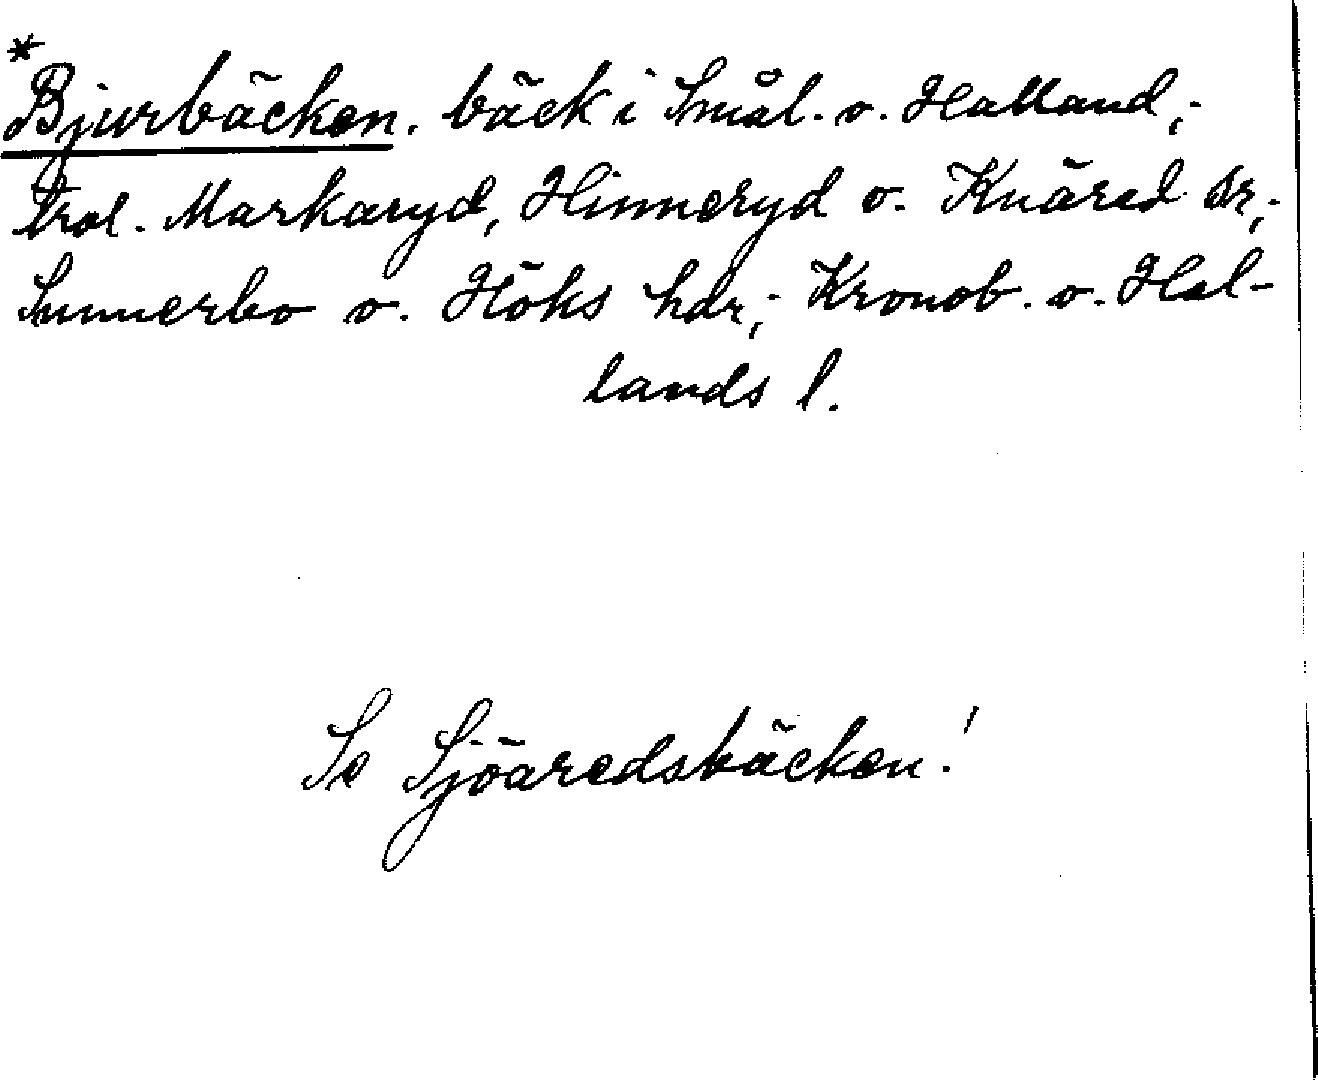 *Bjurbäcken. bäck i Smål. o. Halland,-
trol. Markaryd, Hinneryd o. Knäred snr,-
Sunnerbo o. Höks hdr,- Kronob. o. Hal-
lands l.
Se Sjöaredsbäcken!